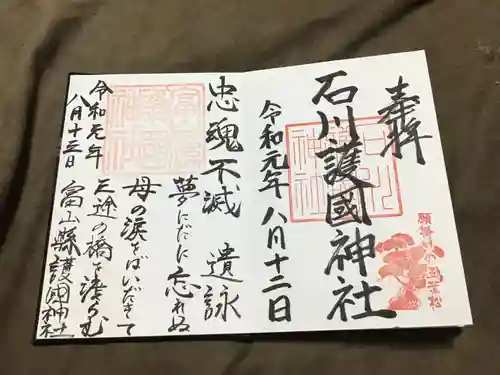 奉拝
石川護國神社
令和元年八月十二日
忠魂不滅 遺詠
夢にだに忘れぬ
母の涙をばいだきて
三途の橋を渡らむ
富山縣護國神社
令和元年
八月十三日
石川
護國
神社
富山縣
護國
神社